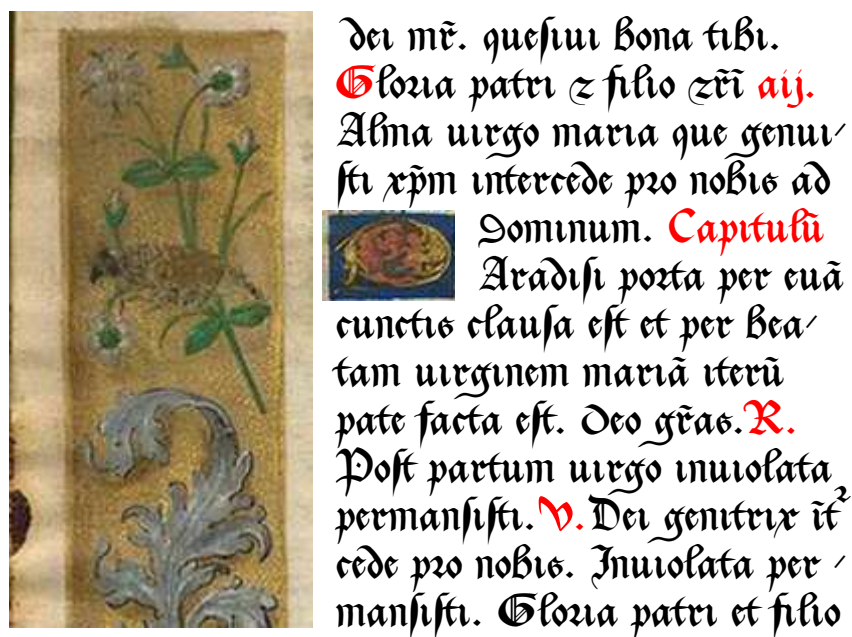 dei mr̃. quesiui bona tibi.
Gloria patri ⁊ filio ⁊r̃i aij.
Alma uirgo maria que genui⸝
sti xp̃m intercede pro nobis ad
dominum. Capitulũ
Aradisi porta per euã
cunctis clausa est et per bea⸝
tam uirginem mariã iterũ
pate facta est. deo gr̃as. R.
Post partum uirgo inuiolata
permansisti. V. Dei genitrix ĩt᷑
cede pro nobis. Inuiolata per ⸝
mansisti. Gloria patri et filio